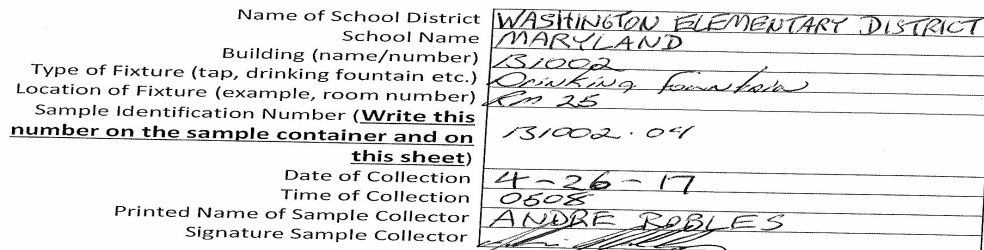 Name of School District WASHINGTON ELEMENTARY DISTRICT
School Name MARYLAND
Building (name/number) 131002
Type of Fixture (tap, drinking fountain etc.) Drinking fountain
Location of Fixture (example, room number) Rm 25
Sample Identification Number (Write this
number on the sample container and on
this sheet) 131002.04
Date of Collection 4-26-17
Time of Collection 0508
Printed Name of Sample Collector ANDRE ROBLES
Signature Sample Collector